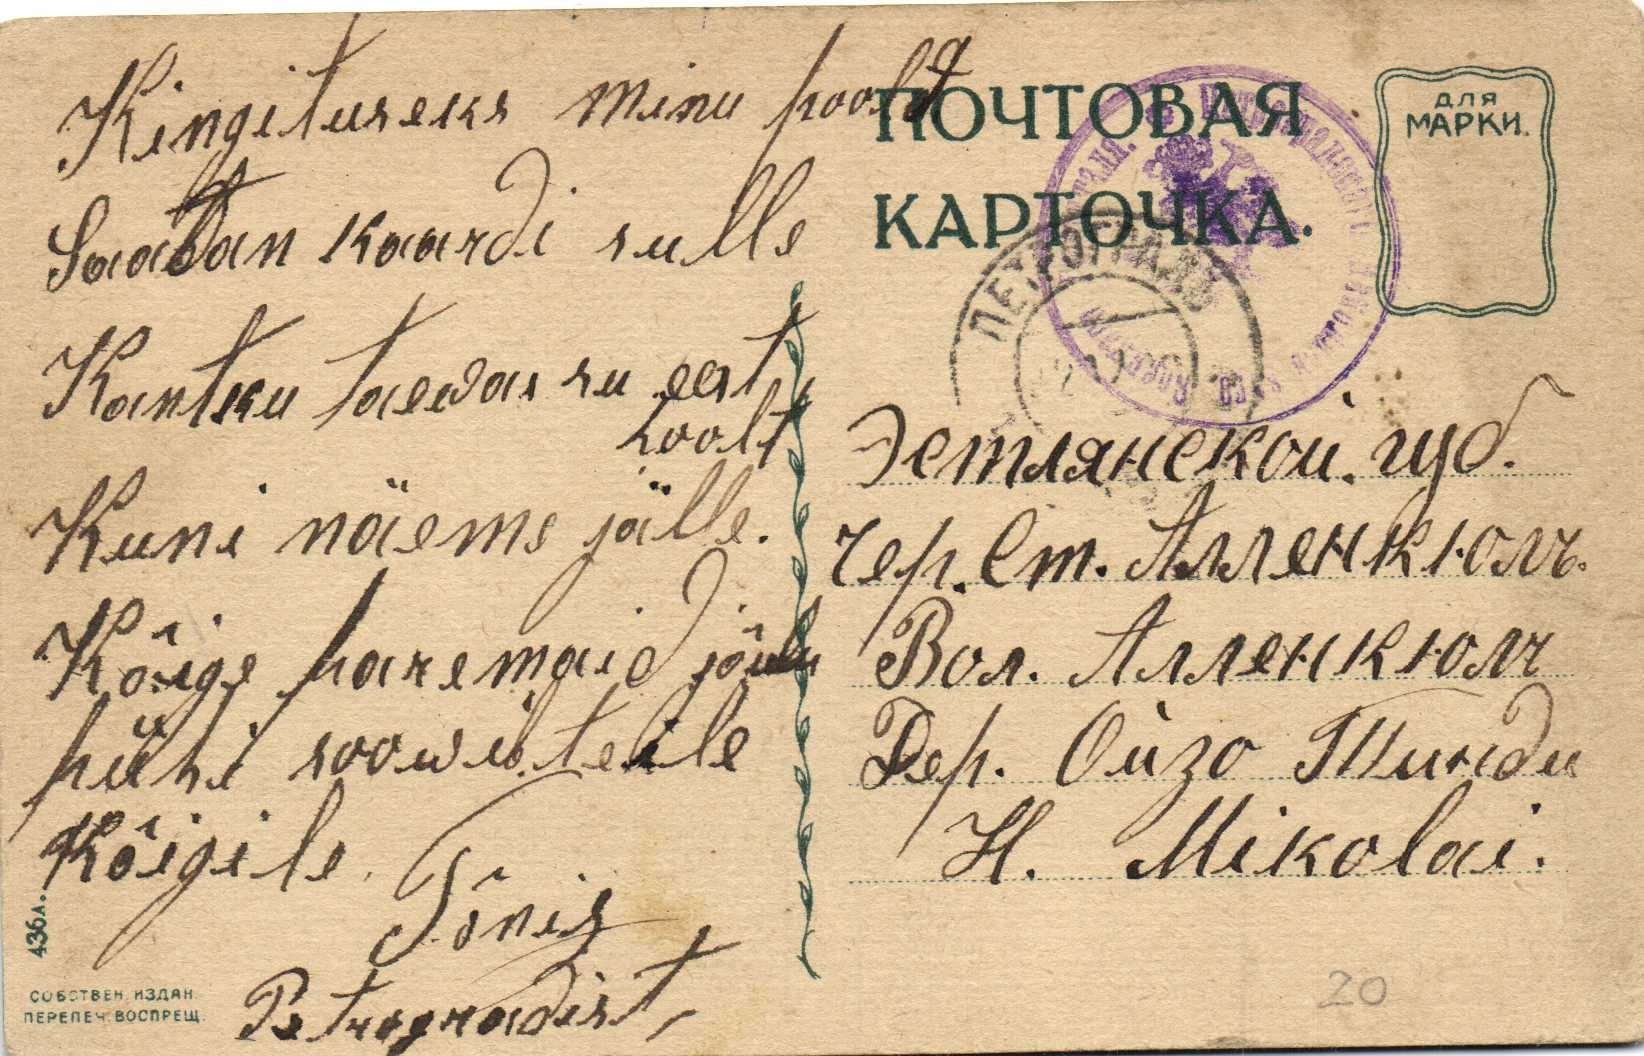 Kingituseks minu poolt
Saadan kaardi sulle
Kantku taewas su eest
hoolt
Kuni näeme jälle.
Kõige paremaid jõulu
pühi soowib teile
Kõigile.
Tõnis
Petrogradist,
436л.
СОБСТВЕН. ИЗДАН.
ПЕРЕПЕЧ. ВОСПРЕЩ.
ПОЧТОВАЯ
КАРТОЧКА.
ДЛЯ
МАРКИ.
ПЕТРОГРАДЪ
Эстлянской. губ.
чер. Ст. Алленкюль.
Вол. Алленкюль
Дер. Ойзо Тинди
H. Mikolai.
20